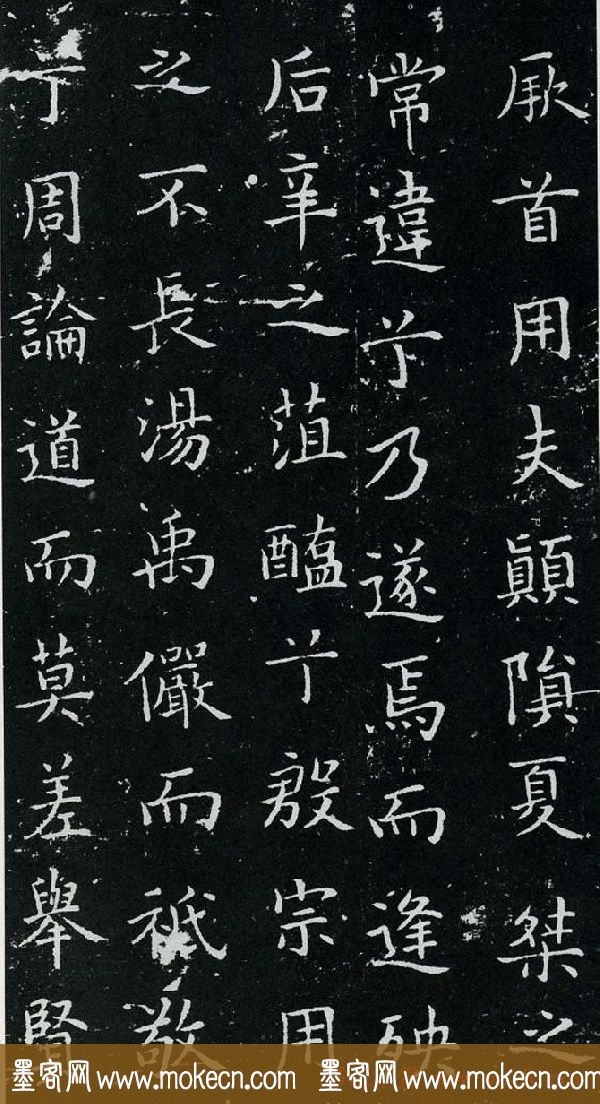 厥首用夫顛隕夏桀之
常違兮乃遂焉而逢殃
后辛之菹醢兮殷宗用
之不長湯禹儼而祗敬
兮周論道而莫差舉賢
墨客网 www.mokecn.com 墨客网 www.mokecn.com